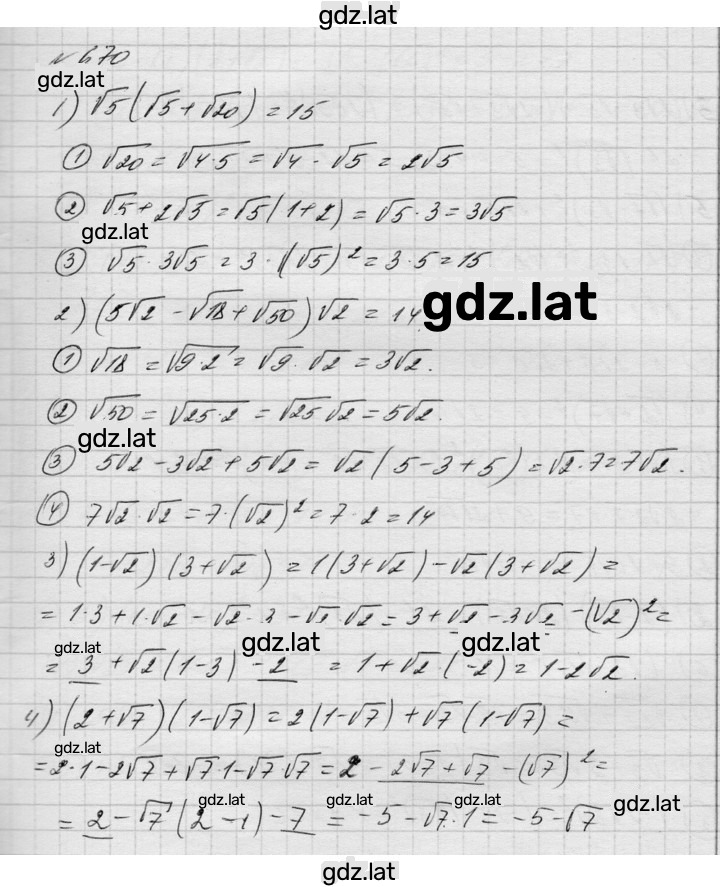 gdz.lat
№ 670
gdz.lat
1) √5(√5+√20) = 15
① √20 = √4·5 = √4 · √5 = 2√5
② √5 + 2√5 = √5(1+2) = √5 · 3 = 3√5
gdz.lat
③ √5 · 3√5 = 3 · (√5)² = 3 · 5 = 15
2) (5√2 - √18 + √50)√2 = 14. gdz.lat
① √18 = √9·2 = √9 · √2 = 3√2.
② √50 = √25·2 = √25 √2 = 5√2.
gdz.lat
③ 5√2 - 3√2 + 5√2 = √2(5-3+5) = √2·7 = 7√2.
④ 7√2·√2 = 7·(√2)² = 7·2 = 14
3) (1-√2)(3+√2) = 1(3+√2) - √2(3+√2) =
= 1·3 + 1·√2 - √2·3 - √2·√2 = 3 + √2 - 3√2 - (√2)² =
gdz.lat gdz.lat gdz.lat
= 3 + √2(1-3) - 2 = 1 + √2(-2) = 1 - 2√2.
4) (2+√7)(1-√7) = 2(1-√7) + √7(1-√7) =
gdz.lat
= 2·1 - 2√7 + √7·1 - √7·√7 = 2 - 2√7 + √7 - (√7)² =
gdz.lat gdz.lat gdz.lat gdz.lat
= 2 - √7(2-1) - 7 = -5 - √7·1 = -5 - √7
gdz.lat